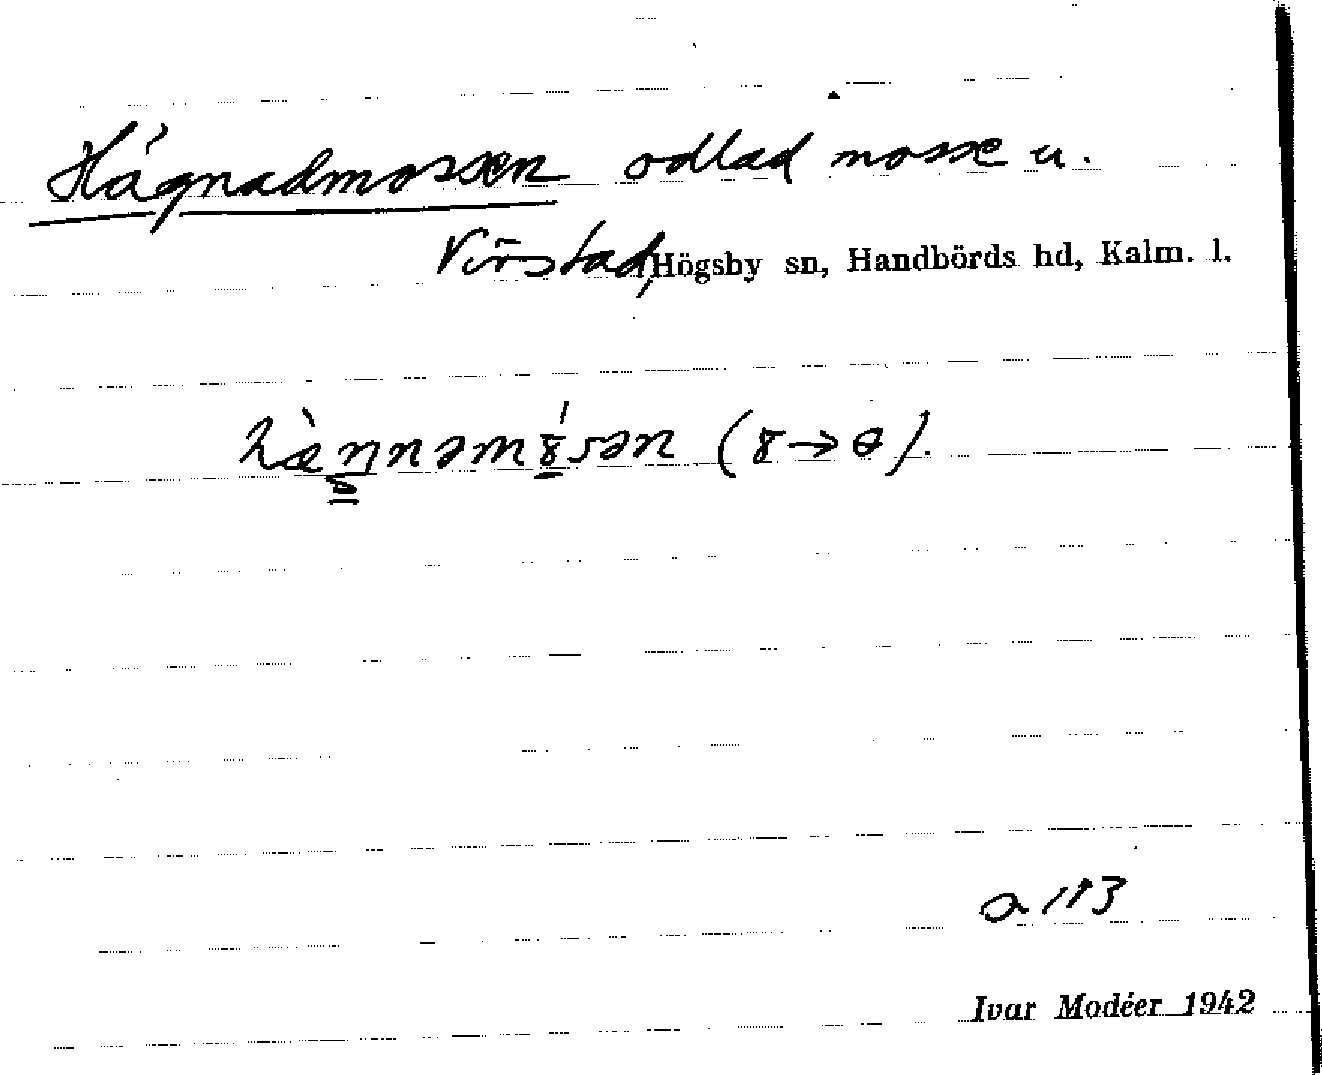 Hägnadmossen odlad mosse u.
Virstad, Högsby sn, Handbörds hd, Kalm. l.
(ȣ→ɵ).
a 113
Ivar Modéer 1942